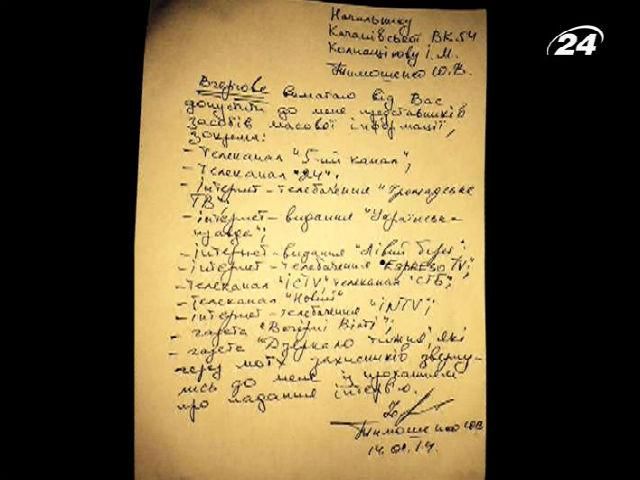 24
Начальнику
Качанівської ВК54
Колпащікову І.М.
Тимошенко Ю.В.
Вчергове вимагаю від Вас
допустити до мене представників
засобів масової інформації,
зокрема:
- телеканал "5-ий канал";
- телеканал "24";
- інтернет-телебачення "Громадське
ТВ";
- інтернет-видання "Українська
правда";
- інтернет-видання "Лівий берег";
- інтернет-телебачення "ESPRESO TV;
- телеканал "ICTV" телеканал "СТБ";
- телеканал "Новий"
- інтернет-телебачення "INTV";
- газета "Вечірні Вісті";
- газета "Дзеркало тижня", які
через моїх захисників зверну-
лись до мене із проханням
про надання інтерв'ю.
Тимошенко ЮВ
14.01.14